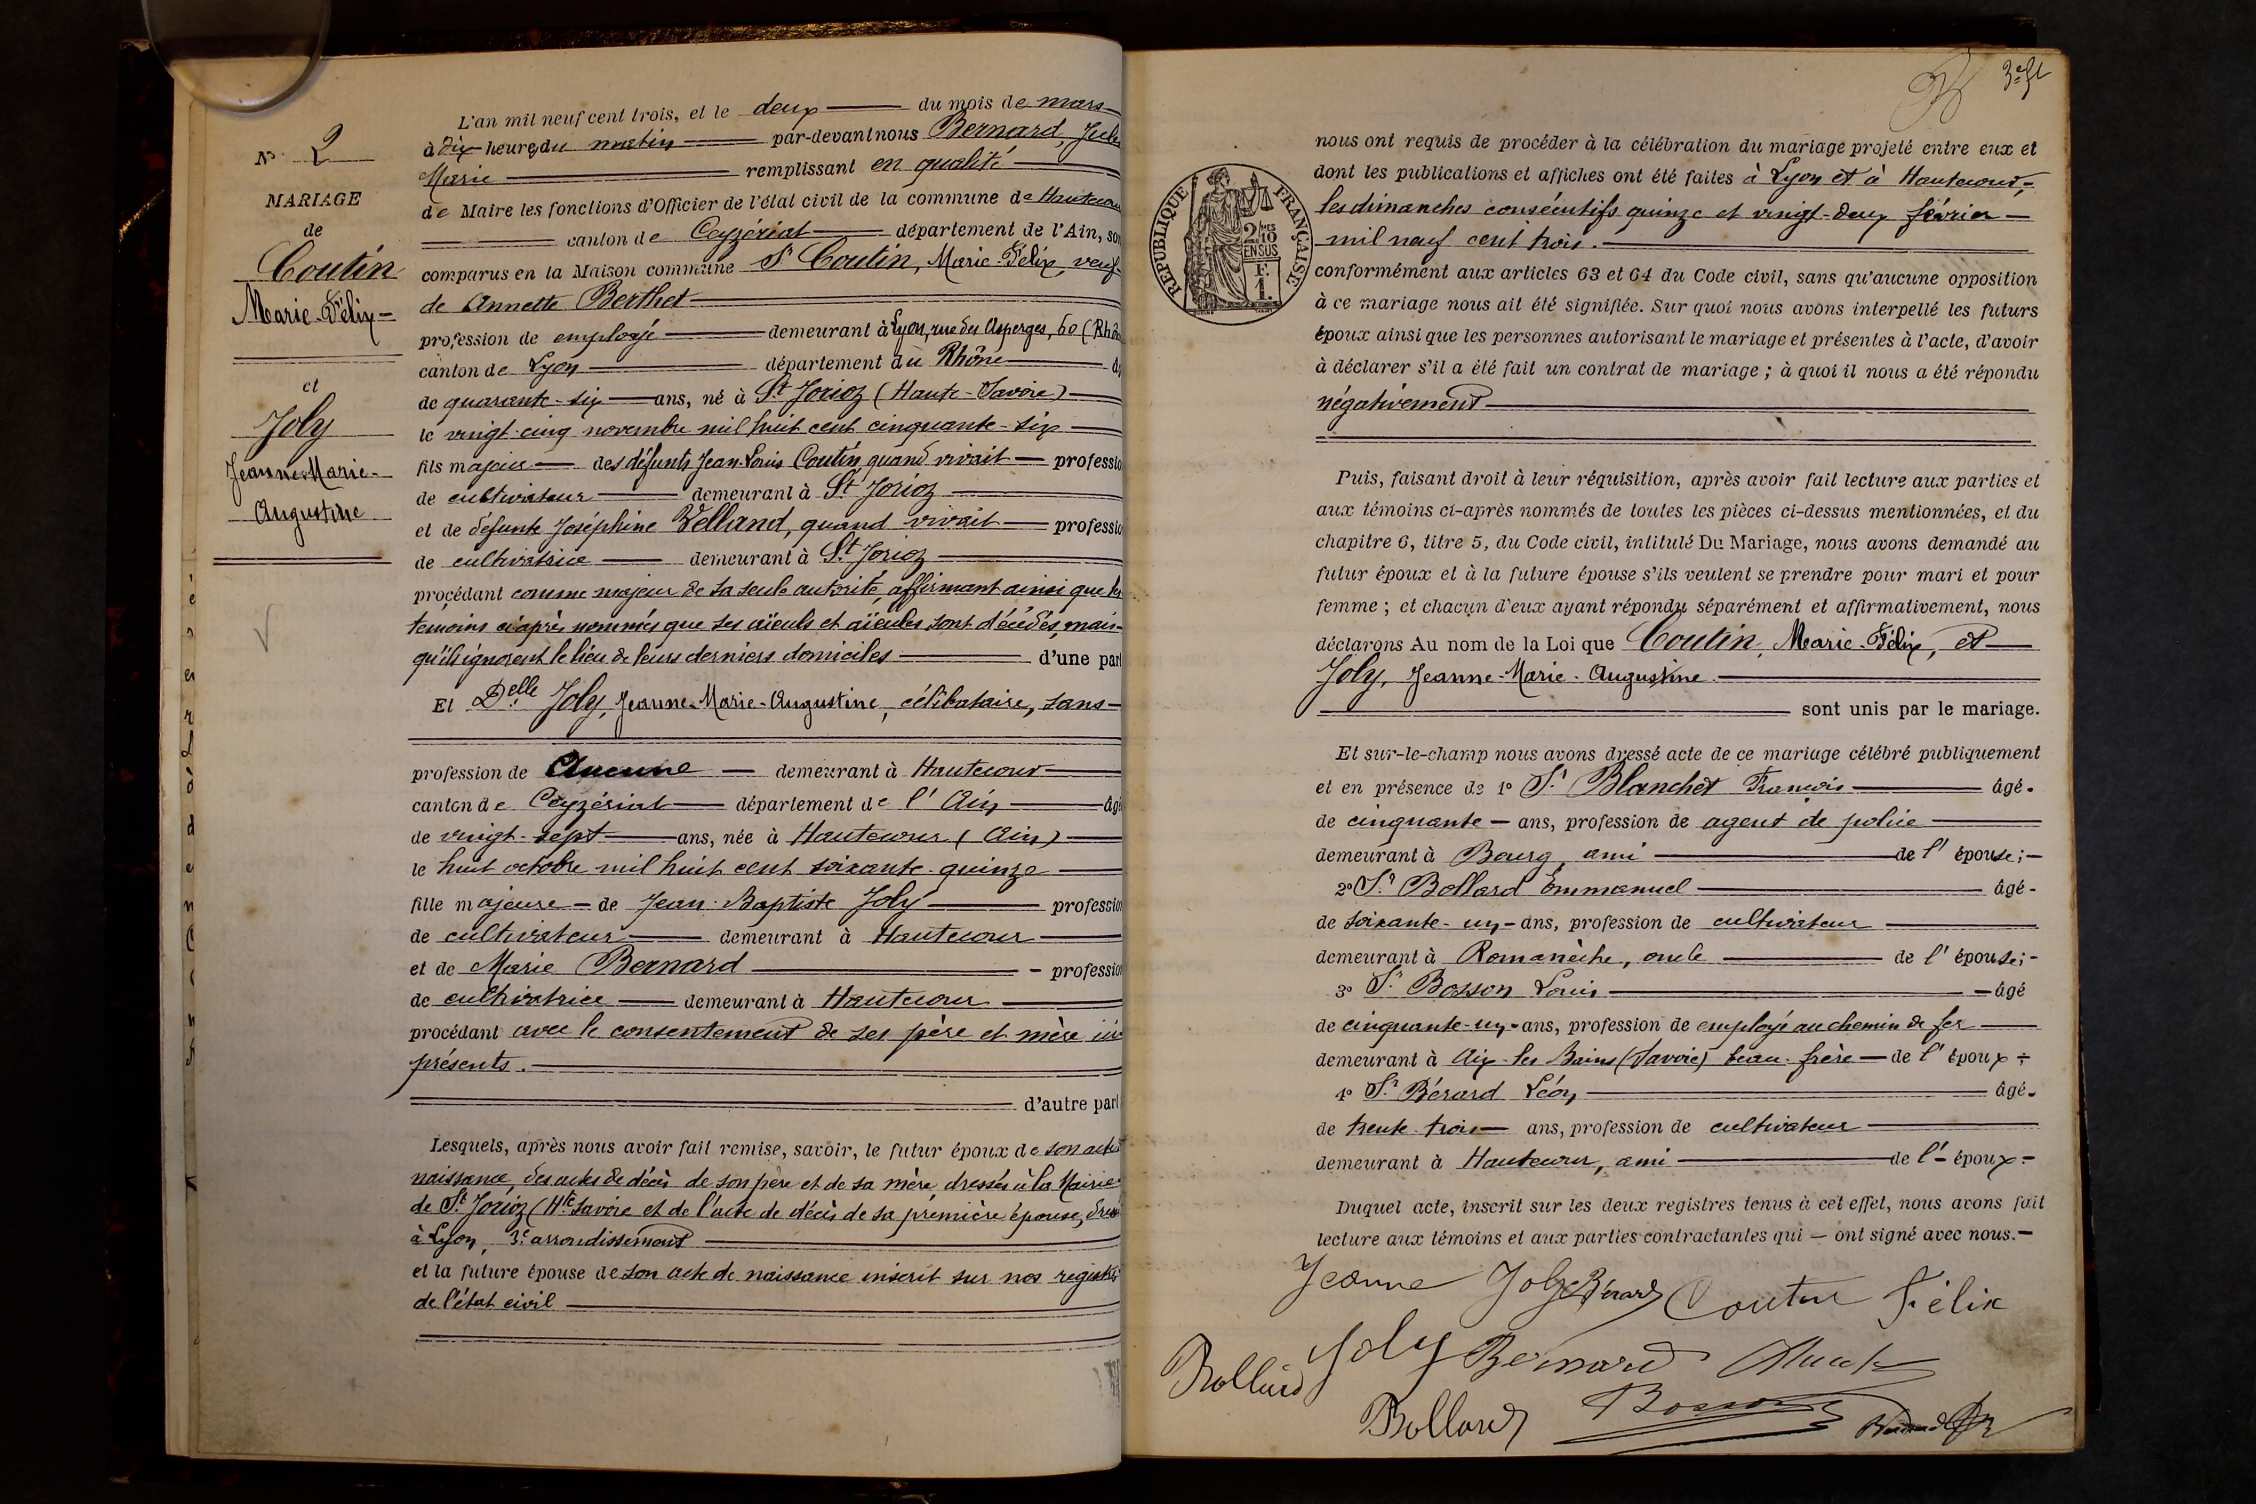 N° 2
MARIAGE
de
Coutin
Marie-Félix
et
Joly
Jeanne-Marie-
Augustine
L'an mil neuf cent trois, et le deux du mois de mars
à dix heures du matin par-devant nous Bernard, Jules
Marie remplissant en qualité
de Maire les fonctions d'Officier de l'état civil de la commune de Hautecour
canton de Ceyzériat département de l'Ain, son
comparus en la Maison commune Sr Coutin, Marie-Félix, veuf
de Annette Berthet
profession de employé demeurant à Lyon, rue des Asperges, 60 (Rhône
canton de Lyon département du Rhône
de quarante-six ans, né à St Jorioz (Haute-Savoie)
le vingt-cinq novembre mil huit cent cinquante-six
fils majeur des défunts Jean-Louis Coutin, quand vivait professio
de cultivateur demeurant à St Jorioz
et de défunte Joséphine Velland, quand vivait professio
de cultivatrice demeurant à St Jorioz
procédant comme majeur de sa seule autorité, affirmant ainsi que les
témoins ci-après nommés que ses aïeuls et aïeules sont décédés, mais
qu'ils ignorent le lieu de leurs derniers domiciles d'une part
Et Delle Joly, Jeanne-Marie-Augustine, célibataire, sans
profession de Aucune demeurant à Hautecour
canton de Ceyzériat département de l'Ain âgé
de vingt-sept ans, née à Hautecour (Ain)
le huit octobre mil huit cent soixante-quinze
fille majeure de Jean-Baptiste Joly profession
de cultivateur demeurant à Hautecour
et de Marie Bernard profession
de cultivatrice demeurant à Hautecour
procédant avec le consentement de ses père et mère ici
présents.
d'autre part
Lesquels, après nous avoir fait remise, savoir, le futur époux de son acte
naissance, des actes de décès de son père et de sa mère dressés à la Mairie
de St Jorioz (Hte Savoie et de l'acte de décès de sa première épouse, dressé
à Lyon, 3e arrondissement
et la future épouse de son acte de naissance inscrit sur nos registres
de l'état civil
3e ft
RÉPUBLIQUE FRANÇAISE
2/10
EN SUS
F.
1.
nous ont requis de procéder à la célébration du mariage projeté entre eux et
dont les publications et affiches ont été faites à Lyon et à Hautecour,
les dimanches consécutifs quinze et vingt-deux février
mil neuf cent trois.
conformément aux articles 63 et 64 du Code civil, sans qu'aucune opposition
à ce mariage nous ait été signifiée. Sur quoi nous avons interpellé les futurs
époux ainsi que les personnes autorisant le mariage et présentes à l'acte, d'avoir
à déclarer s'il a été fait un contrat de mariage ; à quoi il nous a été répondu
négativement
Puis, faisant droit à leur réquisition, après avoir fait lecture aux parties et
aux témoins ci-après nommés de toutes les pièces ci-dessus mentionnées, et du
chapitre 6, titre 5, du Code civil, intitulé Du Mariage, nous avons demandé au
futur époux et à la future épouse s'ils veulent se prendre pour mari et pour
femme ; et chacun d'eux ayant répondu séparément et affirmativement, nous
déclarons Au nom de la Loi que Coutin, Marie-Félix, et
Joly, Jeanne-Marie-Augustine.
sont unis par le mariage.
Et sur-le-champ nous avons dressé acte de ce mariage célébré publiquement
et en présence de 1° Sr Blanchet François âgé
de cinquante ans, profession de agent de police
demeurant à Bourg, ami de l'épouse;
2° Sr Bollard Emmanuel âgé
de soixante-un ans, profession de cultivateur
demeurant à Romanèche, oncle de l'épouse;
3° Sr Bosson Louis âgé
de cinquante-un ans, profession de employé au chemin de fer
demeurant à Aix-les-Bains (Savoie) beau-frère de l'époux
4° Sr Bérard Léon âgé
de trente-trois ans, profession de cultivateur
demeurant à Hautecour, ami de l'époux
Duquel acte, inscrit sur les deux registres tenus à cet effet, nous avons fait
lecture aux témoins et aux parties contractantes qui ont signé avec nous.
Jeanne Joly Bérard Coutin Félix
Joly Bernard
Bollard
Bosson